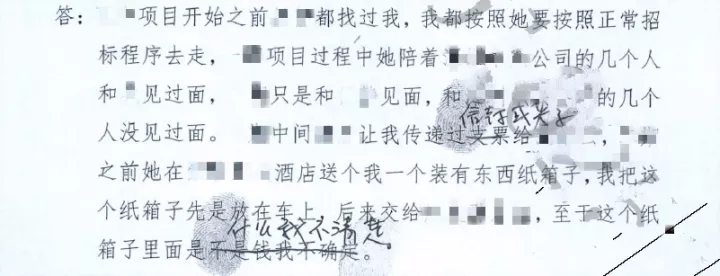 答：项目开始之前都找过我，我都按照她要按照正常招
标程序去走，项目过程中她陪着公司的几个人
和见过面，只是和见面，和的几个
信封或夹子
人没见过面。中间让我传递过支票给，
之前她在酒店送个我一个装有东西纸箱子，我把这
个纸箱子先是放在车上，后来交给，至于这个纸
什么我不清楚。
箱子里面是不是钱我不确定。